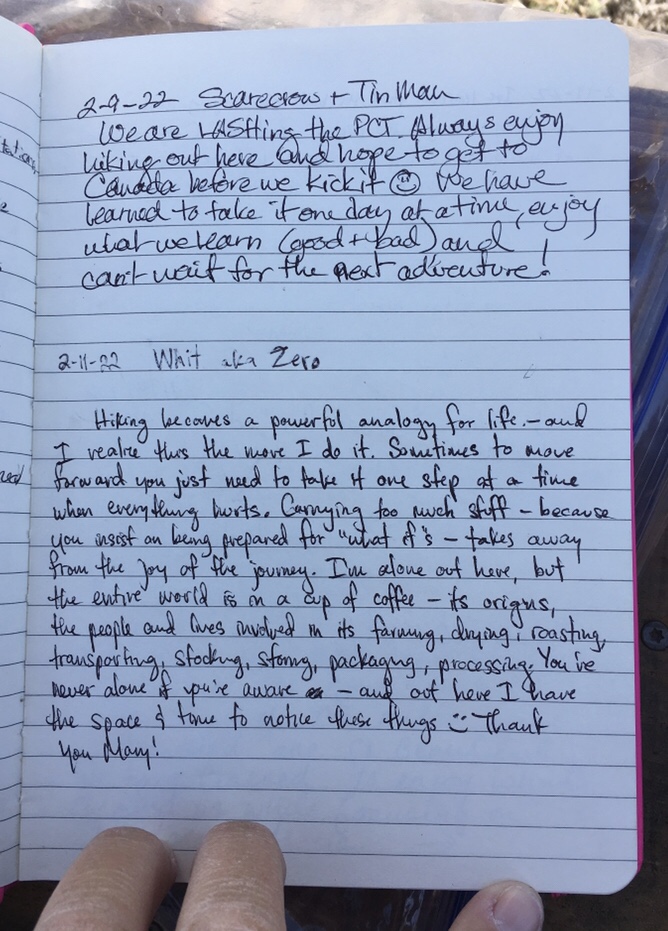 2-9-22 Scarecrow + Tin Man
We are LASHing the PCT. Always enjoy
hiking out here and hope to get to
Canada before we kick it ☺ We have
learned to take it one day at a time, enjoy
what we learn (good + bad) and
can't wait for the next adventure!
2-11-22 Whit aka Zero
Hiking becomes a powerful analogy for life - and
I realize this the more I do it. Sometimes to move
forward you just need to take it one step at a time
when everything hurts. Carrying too much stuff - because
you insist on being prepared for "what if"s - takes away
from the joy of the journey. I'm alone out here, but
the entire world is in a cup of coffee - its origins,
the people and lives involved in its farming, drying, roasting,
transporting, stocking, storing, packaging, processing. You've
never alone if you're aware - and out here I have
the space & time to notice these things :) Thank
You Mary!